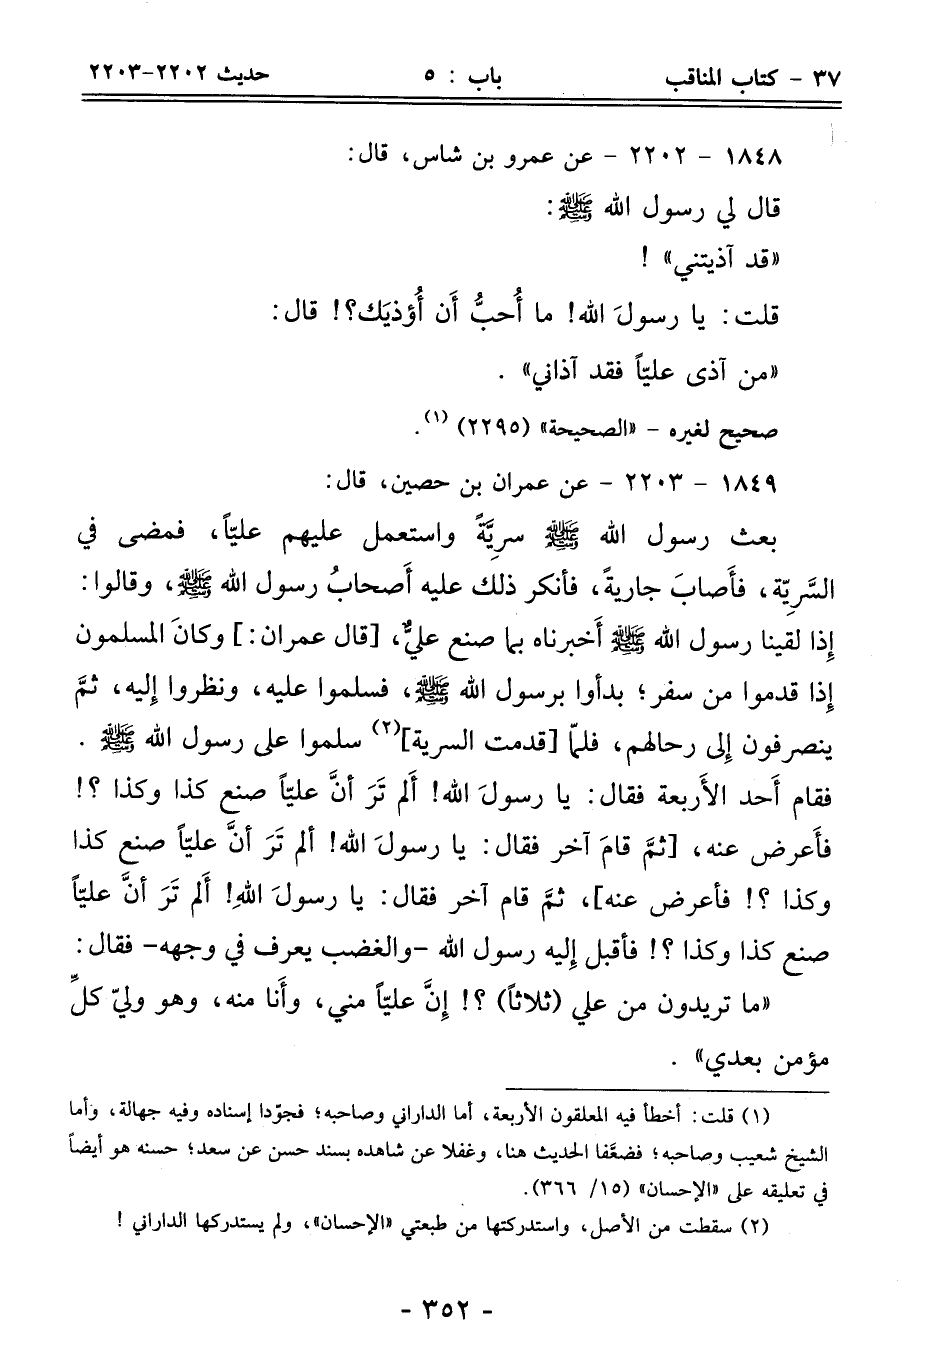 ٣٧ - كتاب المناقب باب : ٥ حديث ٢٢٠٢-٢٢٠٣
١٨٤٨ - ٢٢٠٢ - عن عمرو بن شاس، قال:
قال لي رسول الله ﷺ:
«قد آذيتني» !
قلت: يا رسولَ الله! ما أُحبُّ أَن أُؤذيَك؟! قال:
«من آذى عليّاً فقد آذاني» .
صحيح لغيره - «الصحيحة» (٢٢٩٥) (١).
١٨٤٩ - ٢٢٠٣ - عن عمران بن حصين، قال:
بعث رسول الله ﷺ سريَّةً واستعمل عليهم عليّاً، فمضى في
السَّرِيّة، فأَصابَ جاريةً، فأنكر ذلك عليه أَصحابُ رسول الله ﷺ، وقالوا:
إِذا لقينا رسول الله ﷺ أَخبرناه بما صنع عليٌّ، [قال عمران:] وكانَ المسلمون
إِذا قدموا من سفر؛ بدأوا برسول الله ﷺ، فسلموا عليه، ونظروا إِليه، ثمَّ
ينصرفون إِلى رحالهم، فلمّا [قدمت السرية](٢) سلموا على رسول الله ﷺ .
فقام أَحد الأَربعة فقال: يا رسولَ الله! أَلم تَرَ أنَّ عليّاً صنع كذا وكذا ؟!
فأَعرض عنه، [ثمَّ قامَ آخر فقال: يا رسولَ الله! ألم تَرَ أنَّ عليّاً صنع كذا
وكذا ؟! فأعرض عنه]، ثمَّ قام آخر فقال: يا رسولَ اللهِ! أَلم تَرَ أنَّ عليّاً
صنع كذا وكذا ؟! فأقبل إِليه رسول الله -والغضب يعرف في وجهه- فقال:
«ما تريدون من علي (ثلاثاً) ؟! إِنَّ عليّاً مني، وأَنا منه، وهو وليّ كلِّ
مؤمن بعدي» .
(١) قلت: أخطأ فيه المعلقون الأربعة، أما الداراني وصاحبه؛ فجوّدا إسناده وفيه جهالة، وأما
الشيخ شعيب وصاحبه؛ فضعَّفا الحديث هنا، وغفلا عن شاهده بسند حسن عن سعد؛ حسنه هو أيضاً
في تعليقه على «الإحسان» (١٥/ ٣٦٦).
(٢) سقطت من الأصل، واستدركتها من طبعتي «الإحسان»، ولم يستدركها الداراني !
- ٣٥٢ -